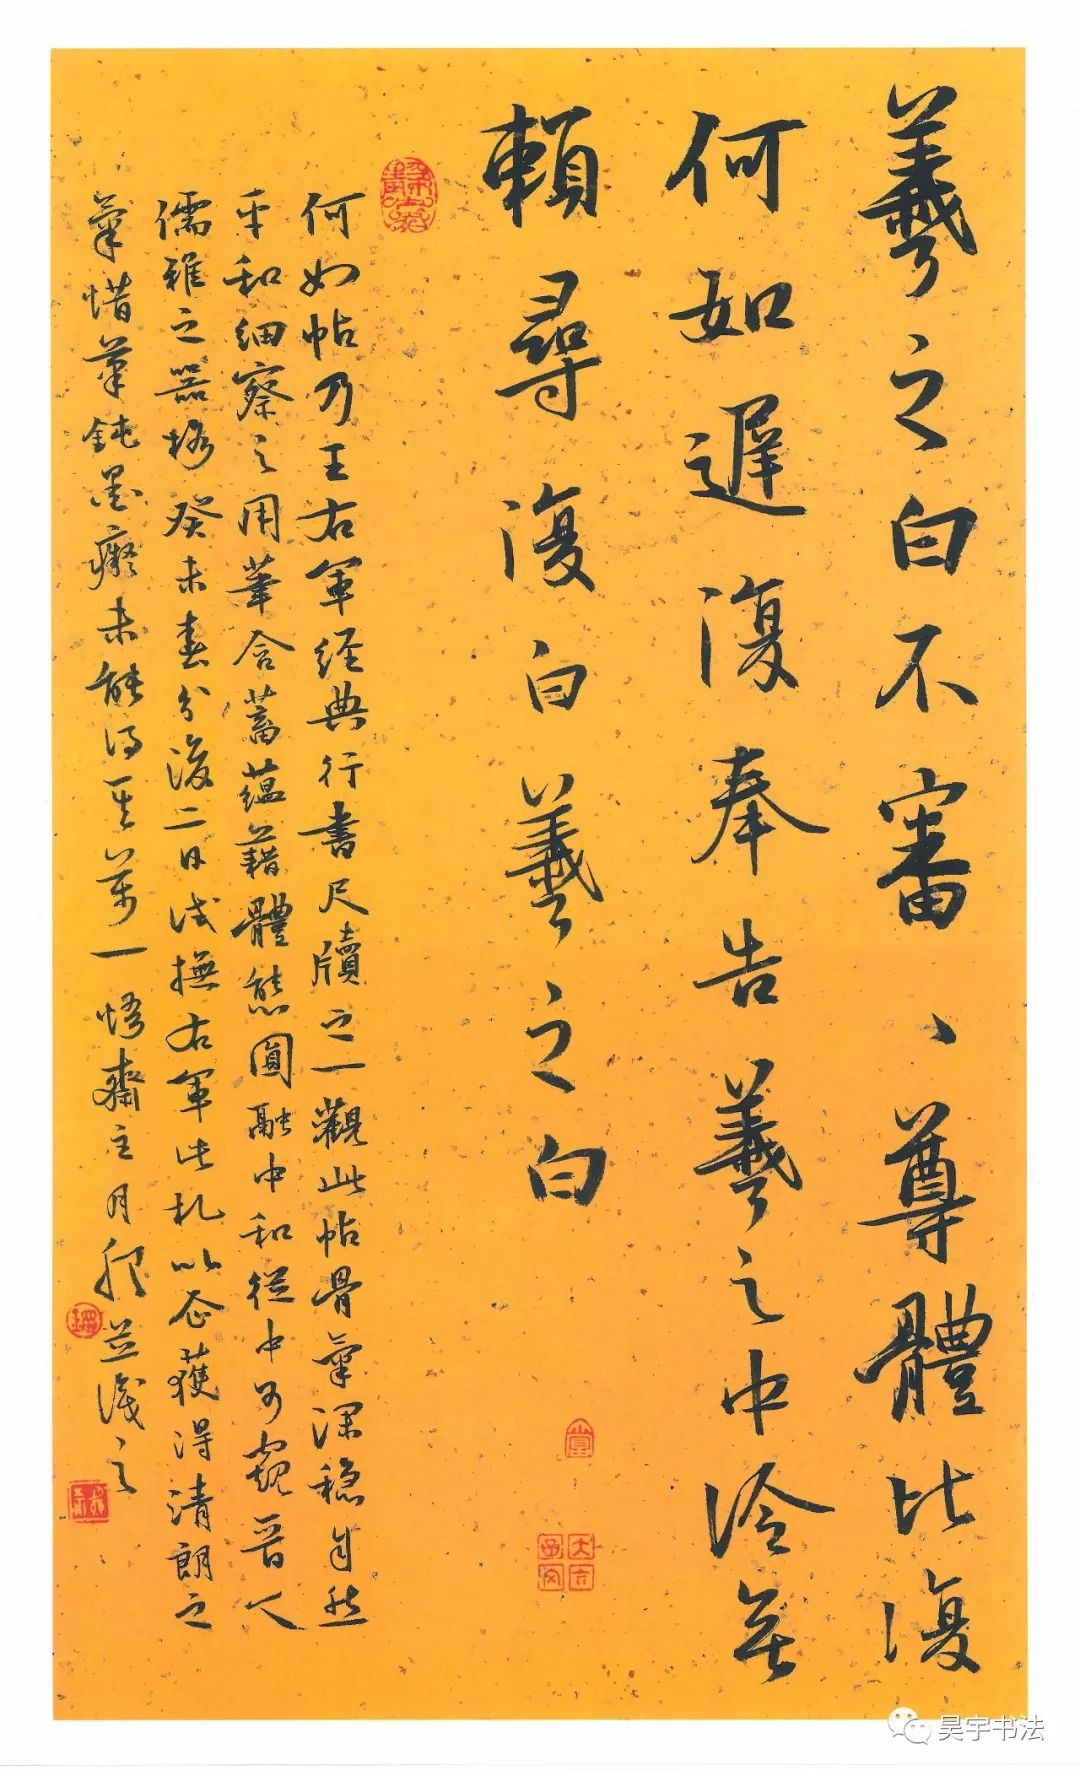 羲之白不審、尊體比復
何如遲復奉告羲之中冷無
賴尋復白羲之白
何如帖乃王右軍經典行書尺牘之一觀此帖骨氣深穩自然
平和細察之用筆含蓄蘊藉體態圓融中和從中可窺晉人
儒雅之器格癸未春分後二日淺撫右軍此札以企獲得清朗之
氣惜筆鈍墨癡未能得其萬一悟齋主月並識之
昊宇书法